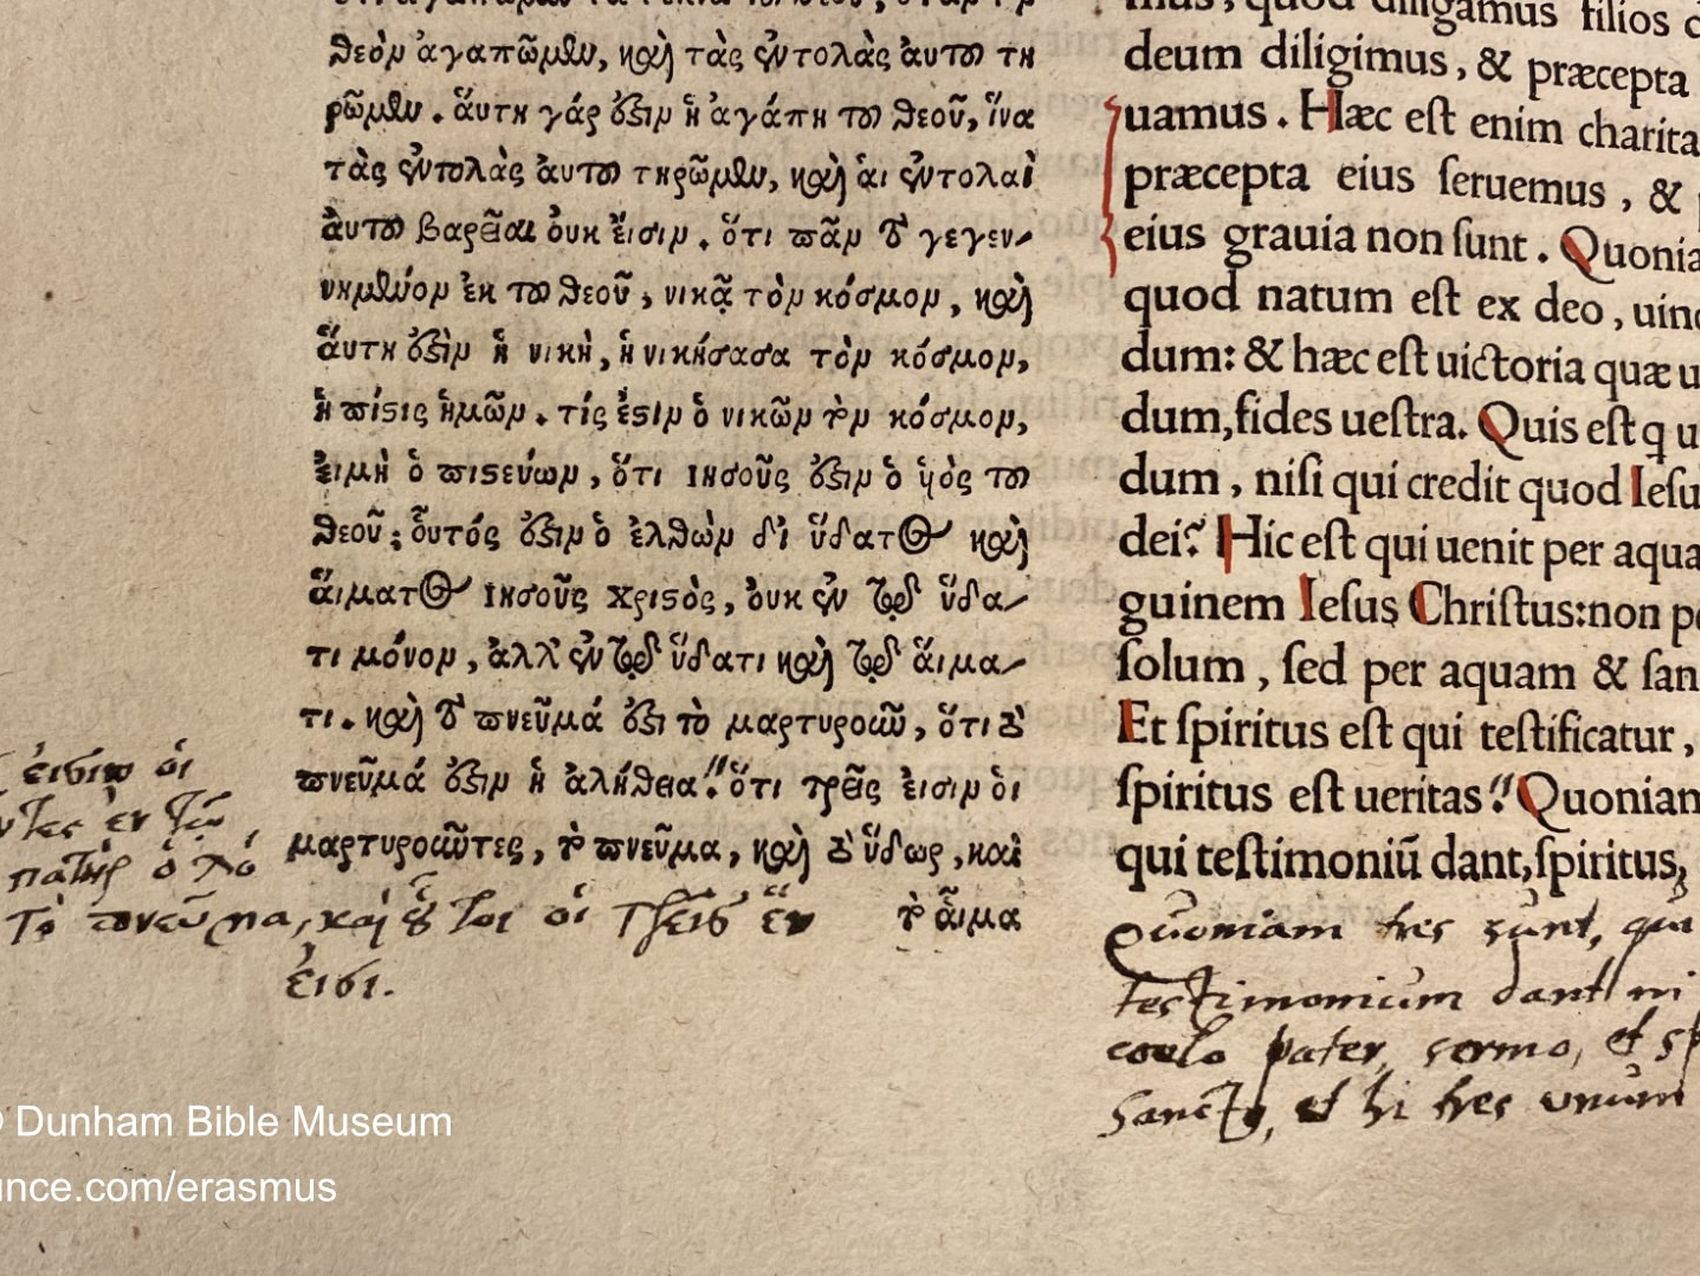 θεὸν ἀγαπῶμεν, καὶ τὰς ἐντολὰς ἀυτοῦ τη
ρῶμεν. ἅυτη γάρ ἐστιν ἡ ἀγάπη τοῦ θεοῦ, ἵνα
τὰς ἐντολὰς ἀυτοῦ τηρῶμεν, καὶ ἁι ἐντολαὶ
ἀυτοῦ βαρεῖαι ὀυκ ἔισιν. ὅτι πᾶν τὸ γεγεν-
νημένον ἐκ τοῦ θεοῦ, νικᾷ τὸν κόσμον, καὶ
ἅυτη ἐστὶν ἡ νικὴ, ἡ νικήσασα τὸν κόσμον,
ἡ πίστις ἡμῶν. τίς ἐστιν ὁ νικῶν τὸν κόσμον,
ἔιμὴ ὁ πιστεύων, ὅτι ιησοῦς ἐστιν ὁ ὑιὸς τοῦ
θεοῦ; οὗτός ἐστιν ὁ ἐλθὼν δἰ ὕδατος καὶ
ἅιματος ιησοῦς χριστὸς, ὀυκ ἐν τῷ ὕδα-
τι μόνον, ἀλλ' ἐν τῷ ὕδατι καὶ τῷ ἅιμα-
τι. καὶ τὸ πνεῦμά ἐστι τὸ μαρτυροῦν, ὅτι τὸ
πνεῦμά ἐστιν ἡ ἀλήθεια." ὅτι τρεῖς ἐισιν ὁι
μαρτυροῦντες, τὸ πνεῦμα, καὶ τὸ ὕδωρ, καὶ
τὸ ἇιμα
ἐισιν ὁι
ἐν τῷ
πατὴρ ὁ λό
Τὸ πνεῦμα, καὶ οὗτοι ὁι τρεῖς ἓν
ἐισι.
mus, quod diligamus filios
deum diligimus, & præcepta
uamus. Hæc est enim charita
præcepta eius seruemus, &
eius grauia non sunt. Quonia
quod natum est ex deo, uinc
dum: & hæc est uictoria quæ u
dum, fides uestra. Quis est q u
dum, nisi qui credit quod Iesu
dei? Hic est qui uenit per aqua
guinem Iesus Christus: non pe
solum, sed per aquam & san
Et spiritus est qui testificatur,
spiritus est ueritas." Quoniam
qui testimoniū dant, spiritus,
Quoniam tres sunt, qui
testimonium dant in
coelo pater, sermo, et sp
Sanctus, et hi tres unum
© Dunham Bible Museum
unce.com/erasmus